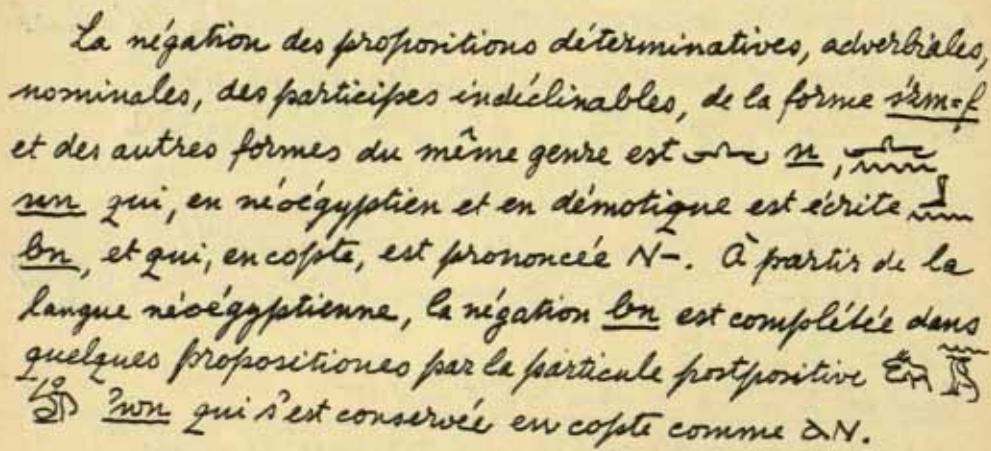 La négation des propositions déterminatives, adverbiales,
nominales, des participes indéclinables, de la forme śḏm=f
et des autres formes du même genre est 𓂜 n, 𓂜𓈖
nn qui, en néoégyptien et en démotique est écrite 𓃀𓈖
bn, et qui, en copte, est prononcée ⲛ-. À partir de la
langue néoégyptienne, la négation bn est complétée dans
quelques propositiones par la particule postpositive
ꞽwn qui s'est conservée en copte comme ⲁⲛ.